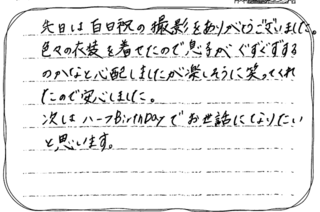 先日は百日祝の撮影をありがとうございました。
色々の衣装を着せたので息子がぐずぐずする
のかなと心配しましたが楽しそうに笑ってくれ
たので安心しました。
次はハーフBirthDayでお世話になりたい
と思います。